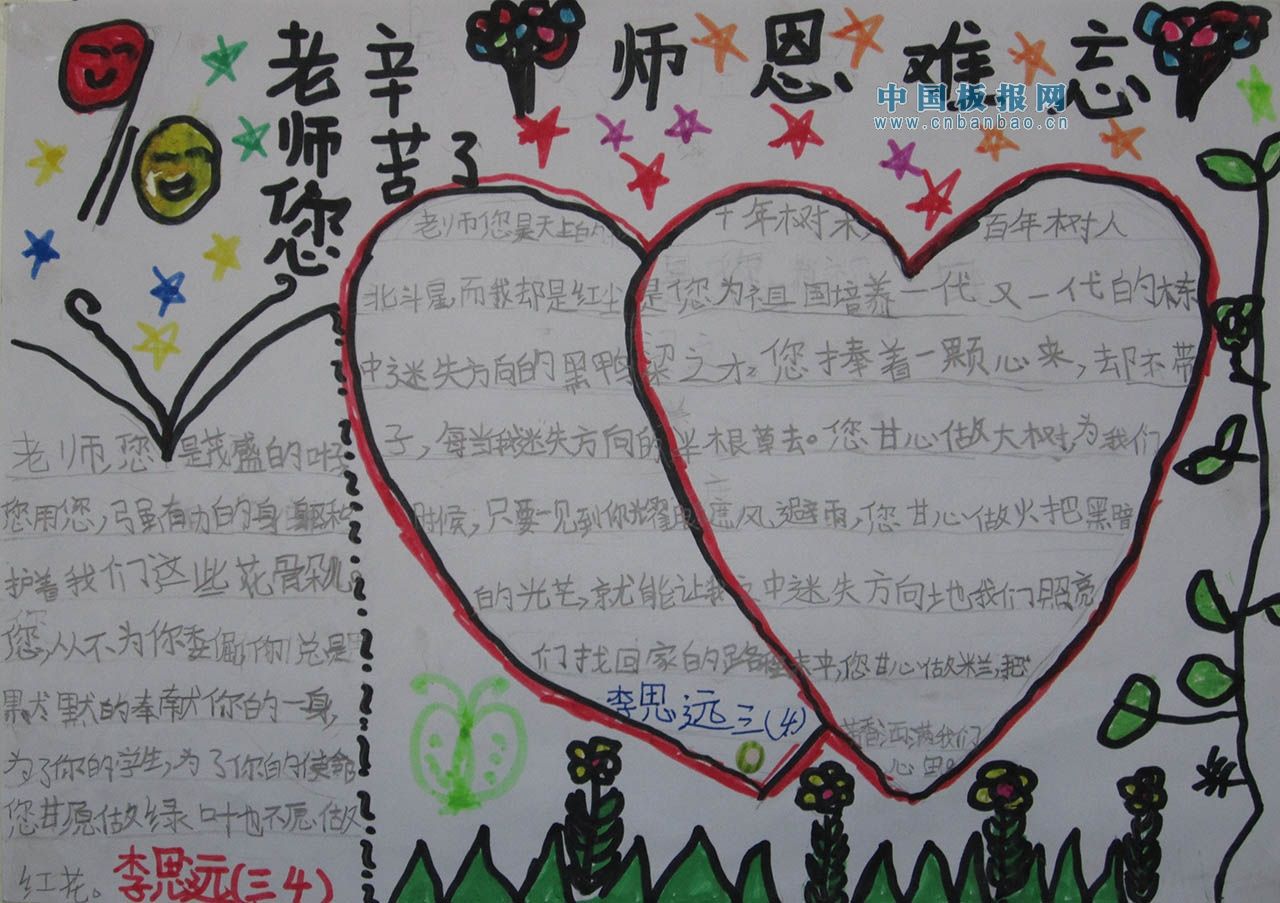 老师您
辛苦了
师恩难忘
中国板报网
www.cnbanbao.cn
老师您是天上的
北斗星而我却是红尘
中迷失方向的黑鸭
子，每当我迷失方向的
时候，只要一见到你耀眼
的光芒，就能让我
们找回家的路
李思远三(4)
十年树木，百年树人
是您为祖国培养一代又一代的栋
梁之才。您捧着一颗心来，却不带
半根草去。您甘心做大树，为我们
遮风避雨，您甘心做火把黑暗
中迷失方向地我们照亮
未来，您甘心做兰，把
香洒满我们
心里。
老师，您是茂盛的叶子
您用您，强有力的身躯和
护着我们这些花骨朵儿。
您，从不为你委屈你总是
黑犬默的奉献你的一身，
为了你的学生，为了你的使命
您甘愿做绿叶也不愿做
红花。
李思远(三4)